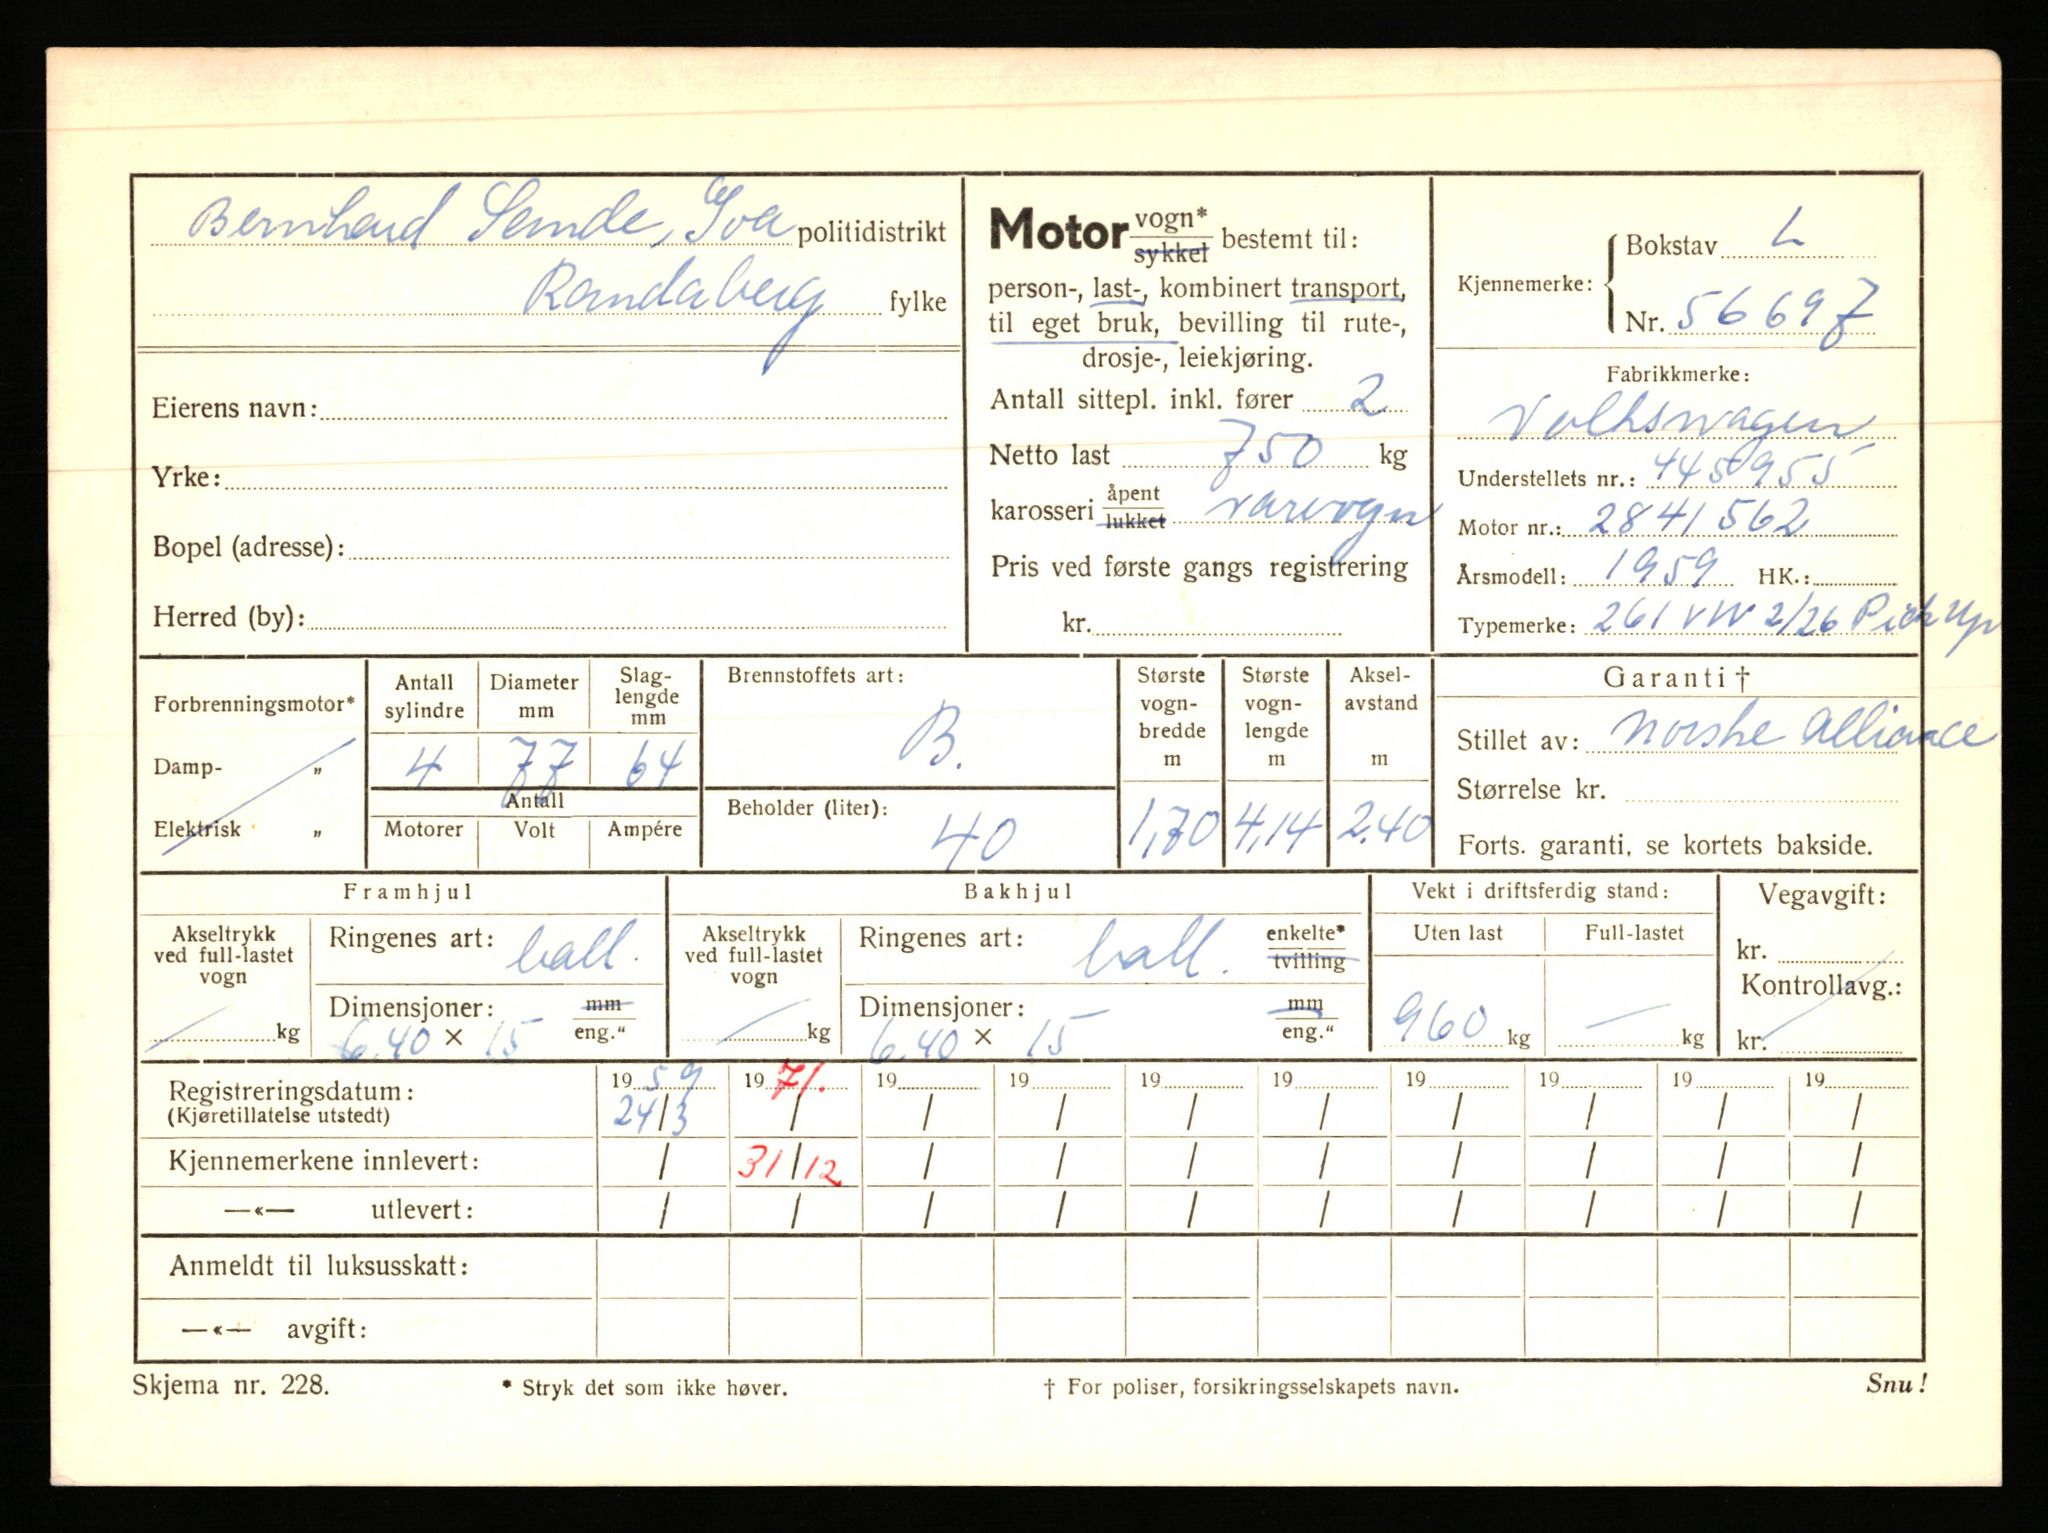 Bernhard Sande, Goa politidistrikt
Randaberg fylke
Eierens navn:
Yrke:
Bopel (adresse):
Herred (by):
Motor vogn* sykkel bestemt til:
person-, last-, kombinert transport,
til eget bruk, bevilling til rute-,
drosje-, leiekjøring.
Antall sittepl. inkl. fører 2
Netto last 750 kg
karosseri åpent lukket varevogn
Pris ved første gangs registrering
kr.
Kjennemerke: Bokstav L
Nr. 56697
Fabrikkmerke:
Volkswagen
Understellets nr.: 445955
Motor nr.: 2841562
Årsmodell: 1959 HK.:
Typemerke: 261 VW 2/26 Pick Up
Forbrenningsmotor*
Damp- „
Elektrisk „
Antall sylindre
Diameter mm
Slag-
lengde
mm
4 77 64
Antall
Motorer Volt Ampére
Brennstoffets art:
B.
Beholder (liter):
40
Største
vogn-
bredde
m
1,70
Største
vogn-
lengde
m
4,14
Aksel-
avstand
m
2.40
Garanti †
Stillet av: Norske Alliance
Størrelse kr.
Forts. garanti, se kortets bakside.
Framhjul
Akseltrykk
ved full-lastet
vogn
kg
Ringenes art: ball.
Dimensjoner: mm
6.40 × 15 eng.“
Bakhjul
Akseltrykk
ved full-lastet
vogn
kg
Ringenes art: ball. enkelte*
tvilling
Dimensjoner: mm
6.40 × 15 eng.“
Vekt i driftsferdig stand:
Uten last Full-lastet
960 kg — kg
Vegavgift:
kr.
Kontrollavg.:
kr.
Registreringsdatum: 1959 1971. 19 19 19 19 19 19 19 19
(Kjøretillatelse utstedt) 24/3 / / / / / / / / /
Kjennemerkene innlevert: / 31/12 / / / / / / / /
—«— utlevert: / / / / / / / / / /
Anmeldt til luksusskatt:
—«— avgift:
Skjema nr. 228. * Stryk det som ikke høver. † For poliser, forsikringsselskapets navn. Snu!